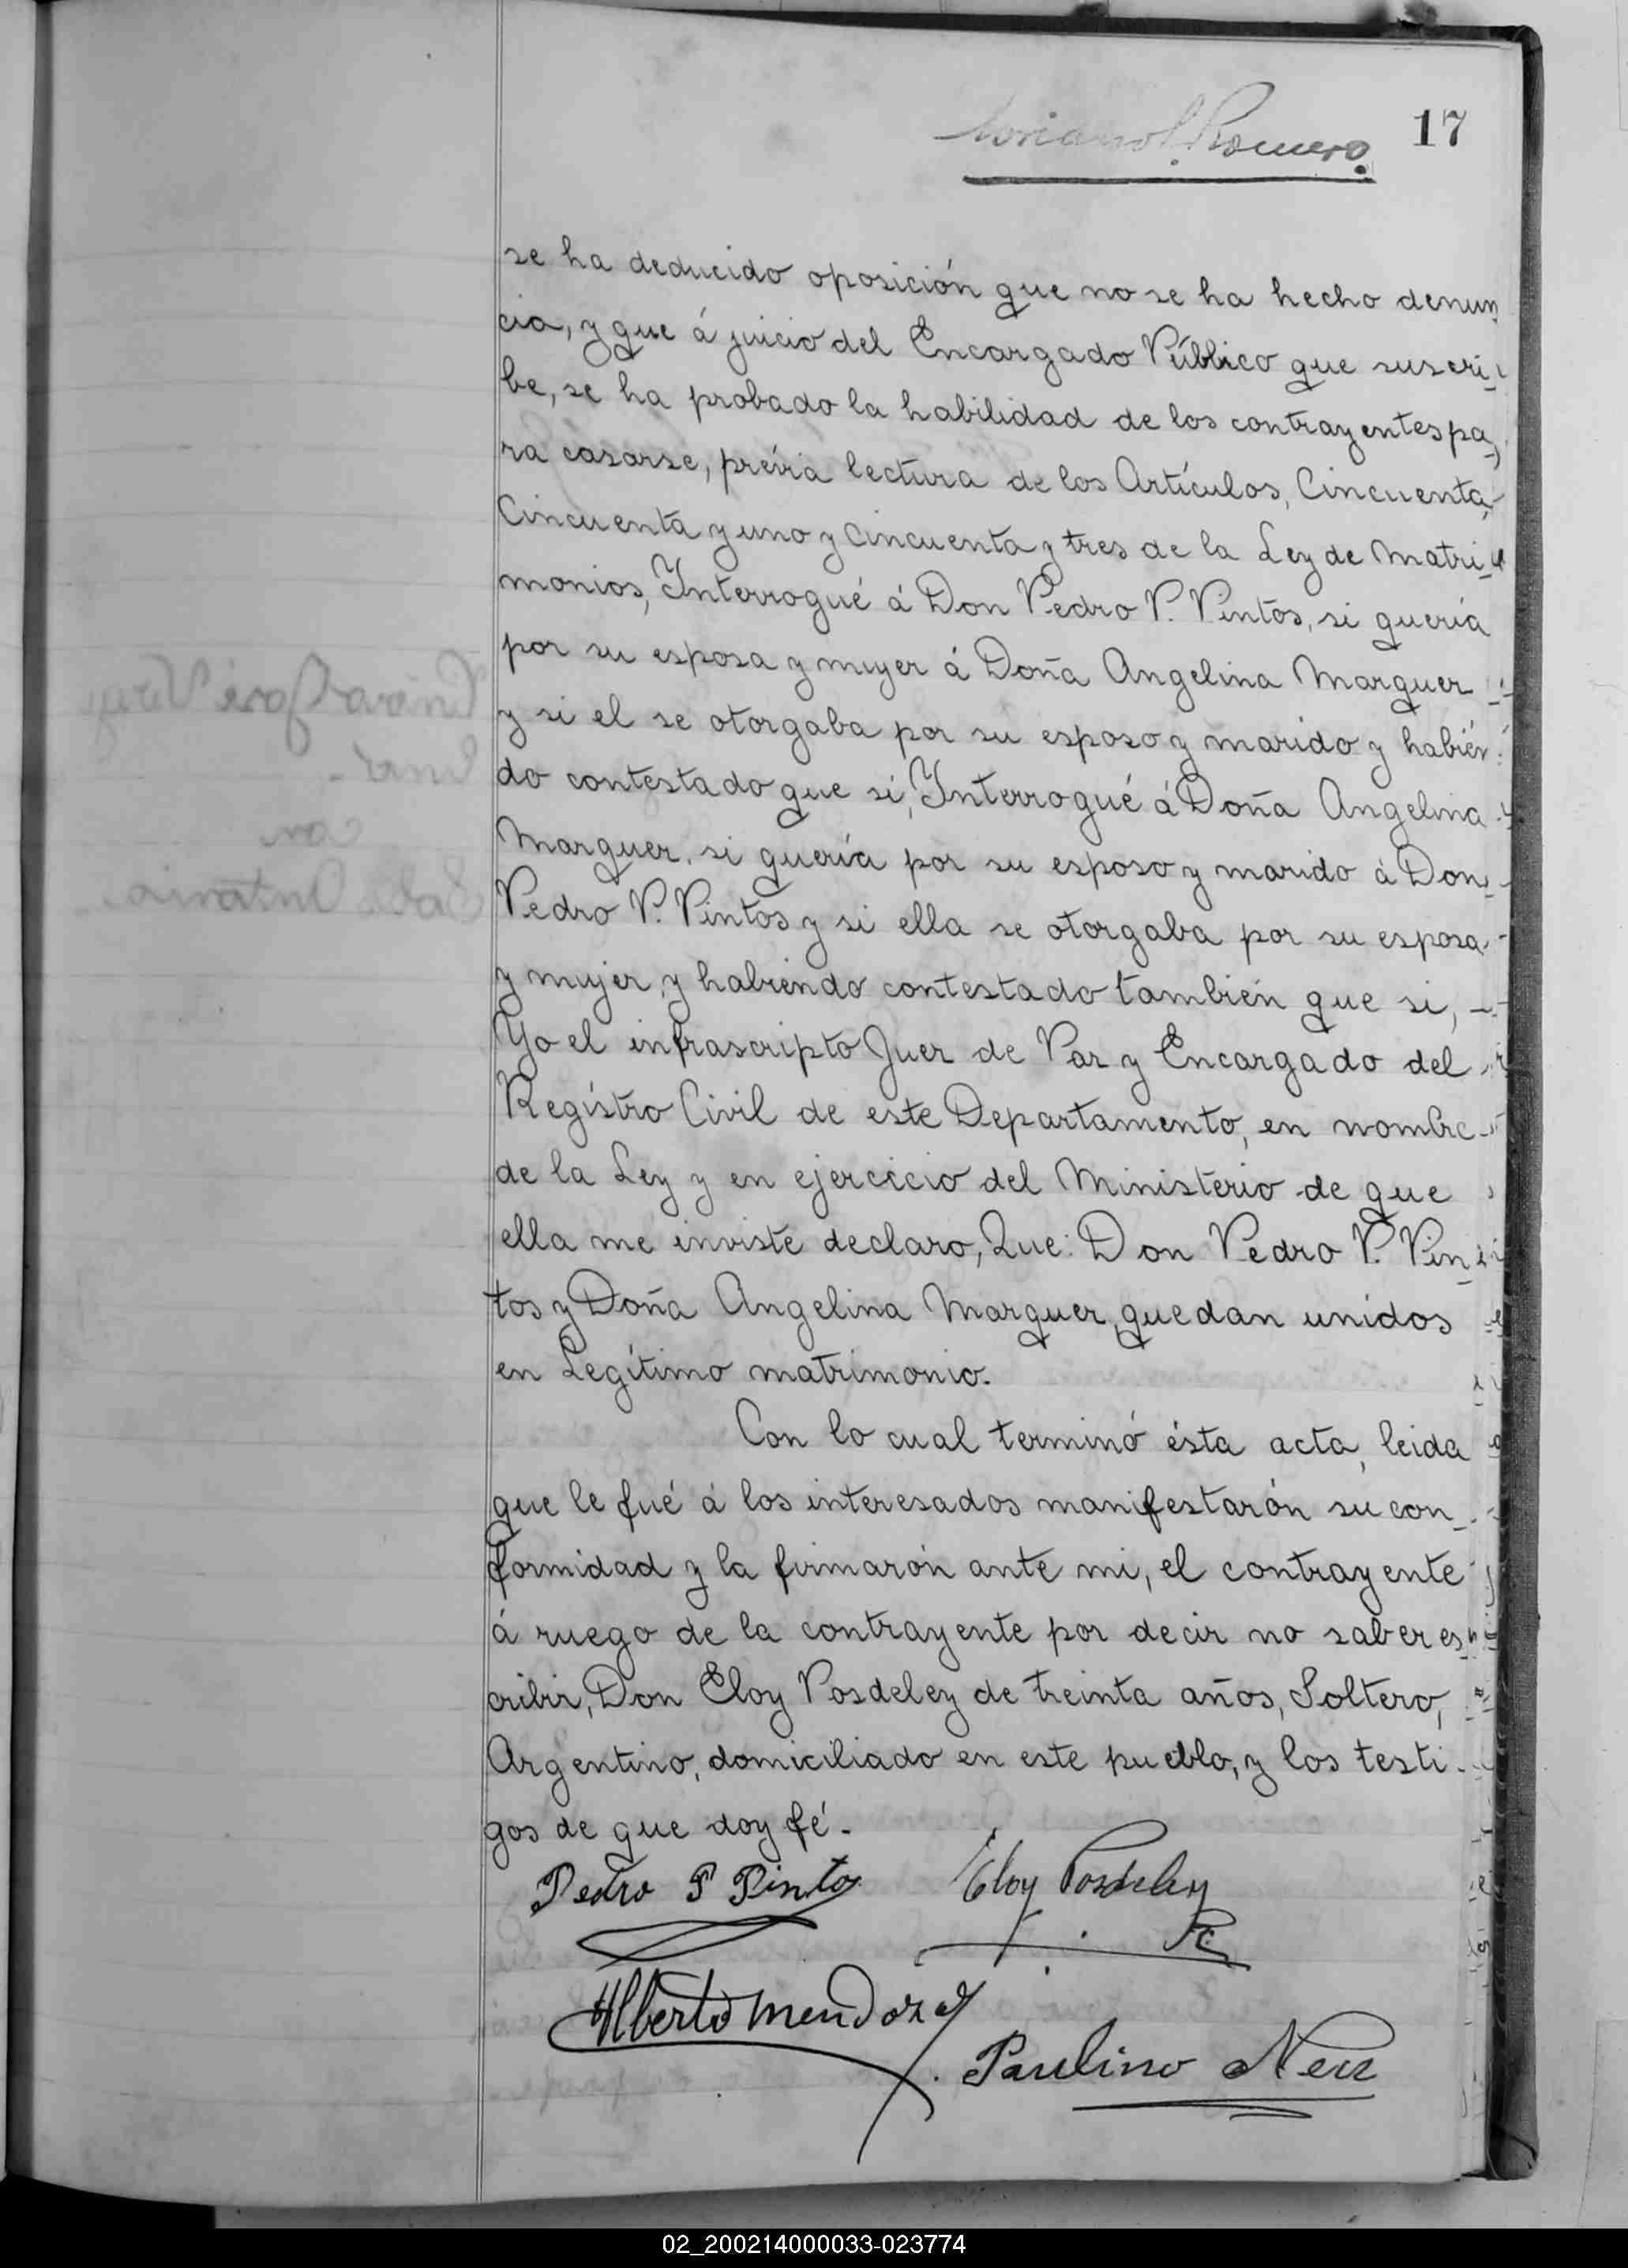 17
Romero
se ha deducido oposición que no se ha hecho denun
cia, y que á juicio del Encargado Público que suscri-
be, se ha probado la habilidad de los contrayentes pa-
ra casarse, prévia lectura de los Artículos, Cincuenta,
Cincuenta y uno y Cincuenta y tres de la Ley de Matri-
monios, Interrogué á Don Pedro P. Pintos, si quería
por su esposa y mujer á Doña Angelina Marquer
y si el se otorgaba por su esposo y marido y habién
do contestado que si, Interrogué á Doña Angelina
Marquer, si quería por su esposo y marido á Don
Pedro P. Pintos y si ella se otorgaba por su esposa
y mujer, y habiendo contestado también que si, -
Yo el infrascripto Juez de Paz y Encargado del
Regístro Civil de este Departamento, en nombre
de la Ley y en ejercicio del Ministerio de que
ella me inviste declaro, Que: Don Pedro P. Pin-
tos y Doña Angelina Marquer, quedan unidos
en Legítimo matrimonio.
Con lo cual terminó ésta acta, leida
que le fué á los interesados manifestarón su con-
formidad y la firmarón ante mi, el contrayente
á ruego de la contrayente por decir no saber es-
cribir, Don Eloy Posdeley de treinta años, Soltero,
Argentino, domiciliado en este pueblo, y los testi-
gos de que doy fé.
Pedro P Pintos
Eloy Posdeley
Alberto Mendoza
Paulino Neu
02_200214000033-023774